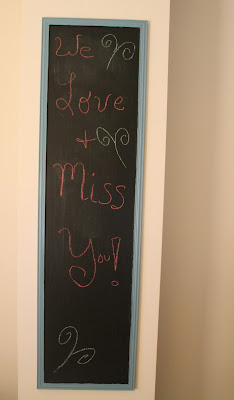 We
Love
+
Miss
You!